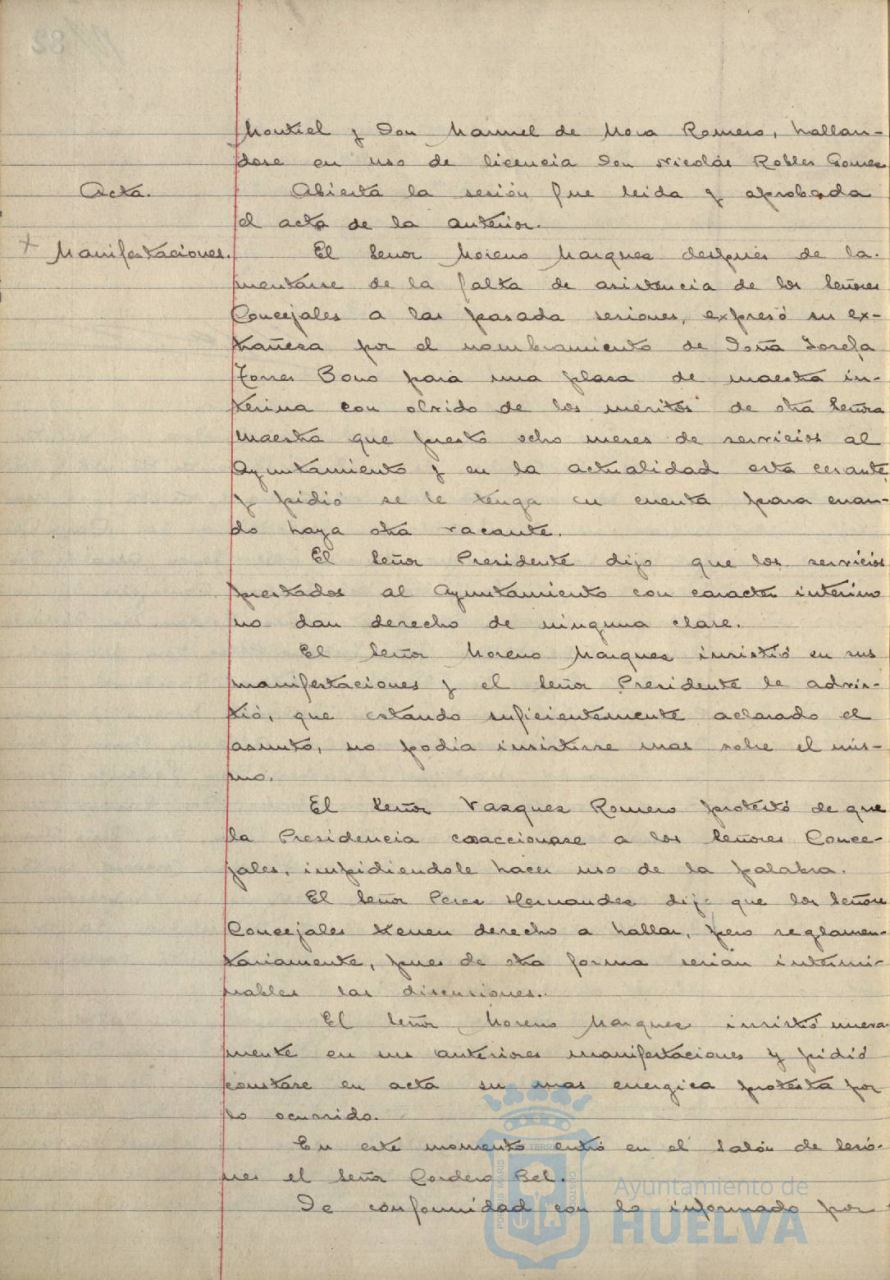 Montiel y Don Manuel de Mora Romero, hallan-
dose en uso de licencia Don Nicolás Robles Gomez
Acta.
Abierta la sesión fue leida y aprobada
el acta de la anterior.
+ Manifestaciones.
El Señor Moreno Marquez despues de la-
mentarse de la falta de asistencia de los Señores
Concejales a las pasada sesiones, expresó su ex-
trañeza por el nombramiento de Doña Josefa
Torres Bono para una plaza de maestra in-
terina con olvido de los meritos de otra Señora
maestra que prestó ocho meses de servicios al
Ayuntamiento y en la actualidad esta cesante
y pidió se le tenga en cuenta para cuan-
do haya otra vacante.
El Señor Presidente dijo que los servicios
prestados al Ayuntamiento con caracter interino
no dan derecho de ninguna clase.
El Señor Moreno Marquez insistió en sus
manifestaciones y el Señor Presidente le advir-
tió, que estando suficientemente aclarado el
asunto, no podia insistirse mas sobre el mis-
mo.
El Señor Vazquez Romero protestó de que
la Presidencia coaccionase a los Señores Conce-
jales, impidiendole hacer uso de la palabra.
El Señor Perez Hernandez dijo que los Señores
Concejales tienen derecho a hablar, pero reglamen-
tariamente, pues de otra forma serian intermi-
nables las discusiones.
El Señor Moreno Marquez insistió nueva-
mente en sus anteriores manifestaciones y pidió
constase en acta su mas energica protesta por
lo ocurrido.
En este momento entró en el Salón de Sesio-
nes el Señor Cordero Bel.
De conformidad con lo informado por
Ayuntamiento de
HUELVA